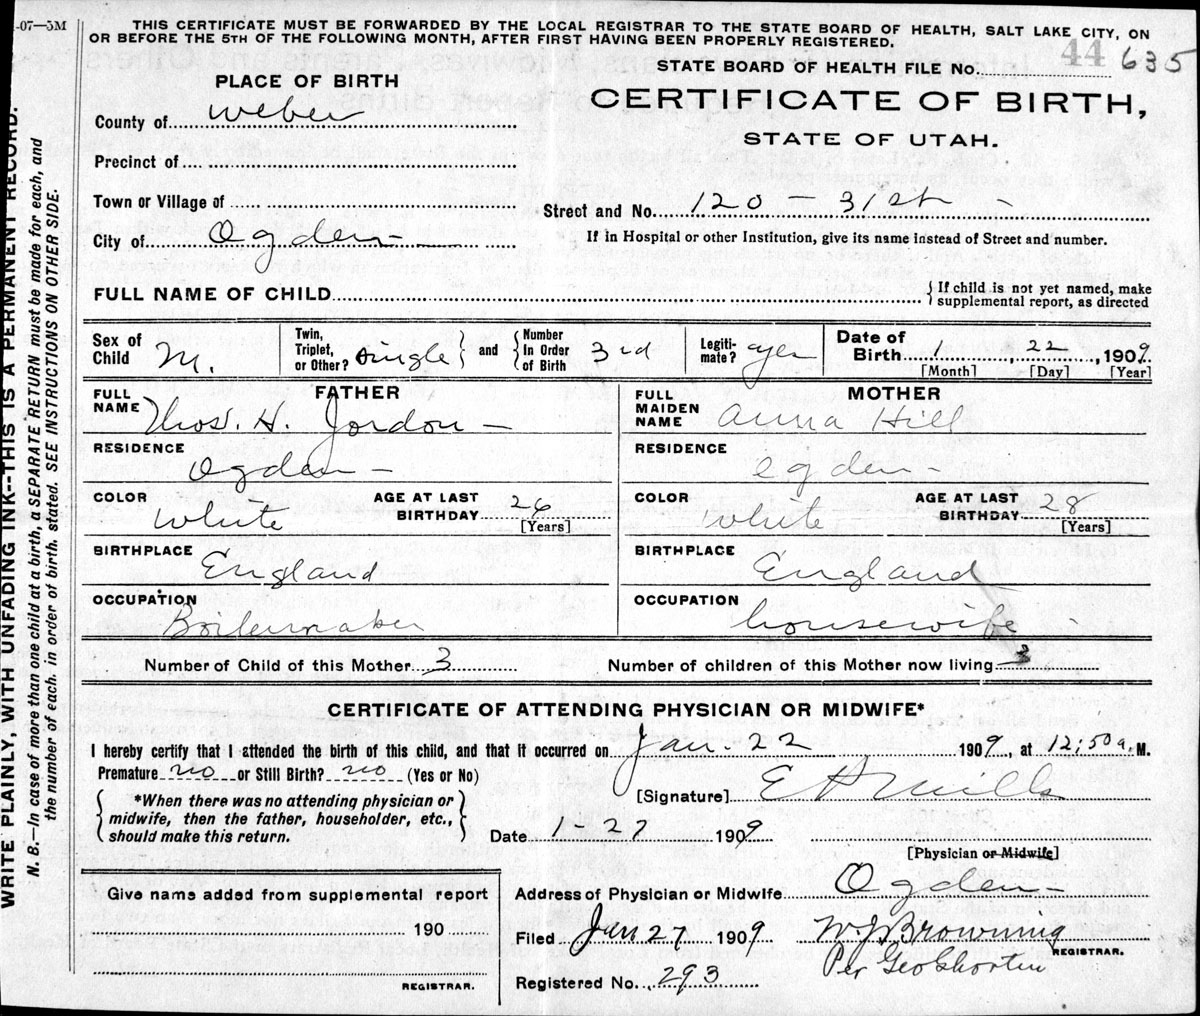 -07—5M
THIS CERTIFICATE MUST BE FORWARDED BY THE LOCAL REGISTRAR TO THE STATE BOARD OF HEALTH, SALT LAKE CITY, ON
OR BEFORE THE 5TH OF THE FOLLOWING MONTH, AFTER FIRST HAVING BEEN PROPERLY REGISTERED.
STATE BOARD OF HEALTH FILE No. 44 635
PLACE OF BIRTH
CERTIFICATE OF BIRTH,
STATE OF UTAH.
County of Weber
Precinct of
Town or Village of
Street and No. 120 - 31st -
City of Ogden
If in Hospital or other Institution, give its name instead of Street and number.
FULL NAME OF CHILD { If child is not yet named, make
supplemental report, as directed
Sex of Child M. Twin, Triplet, or Other? Single } and { Number In Order of Birth 3rd Legiti-mate? yes Date of Birth 1 22, 1909
[Month] [Day] [Year]
FATHER
FULL NAME Thos. H. Jordon -
RESIDENCE
Ogden -
COLOR White AGE AT LAST BIRTHDAY 26
[Years]
BIRTHPLACE
England
OCCUPATION
Boilermaker
MOTHER
FULL MAIDEN NAME Anna Hill
RESIDENCE
Ogden -
COLOR White AGE AT LAST BIRTHDAY 28
[Years]
BIRTHPLACE
England
OCCUPATION
housewife -
Number of Child of this Mother 3 Number of children of this Mother now living 3
CERTIFICATE OF ATTENDING PHYSICIAN OR MIDWIFE*
I hereby certify that I attended the birth of this child, and that it occurred on Jan. 22 1909, at 12;50 a. M.
Premature no or Still Birth? no (Yes or No)
[Signature] E H Mills
{ *When there was no attending physician or
midwife, then the father, householder, etc.,
should make this return. }
Date 1-27 1909
[Physician or Midwife]
Address of Physician or Midwife Ogden -
Filed Jan 27 1909 W J Browning
REGISTRAR.
Per Geo Shorten
Registered No. 293
Give name added from supplemental report
190
REGISTRAR.
WRITE PLAINLY, WITH UNFADING INK--THIS IS A PERMANENT RECORD.
N. B.—In case of more than one child at a birth, a SEPARATE RETURN must be made for each, and
the number of each, in order of birth, stated. SEE INSTRUCTIONS ON OTHER SIDE.